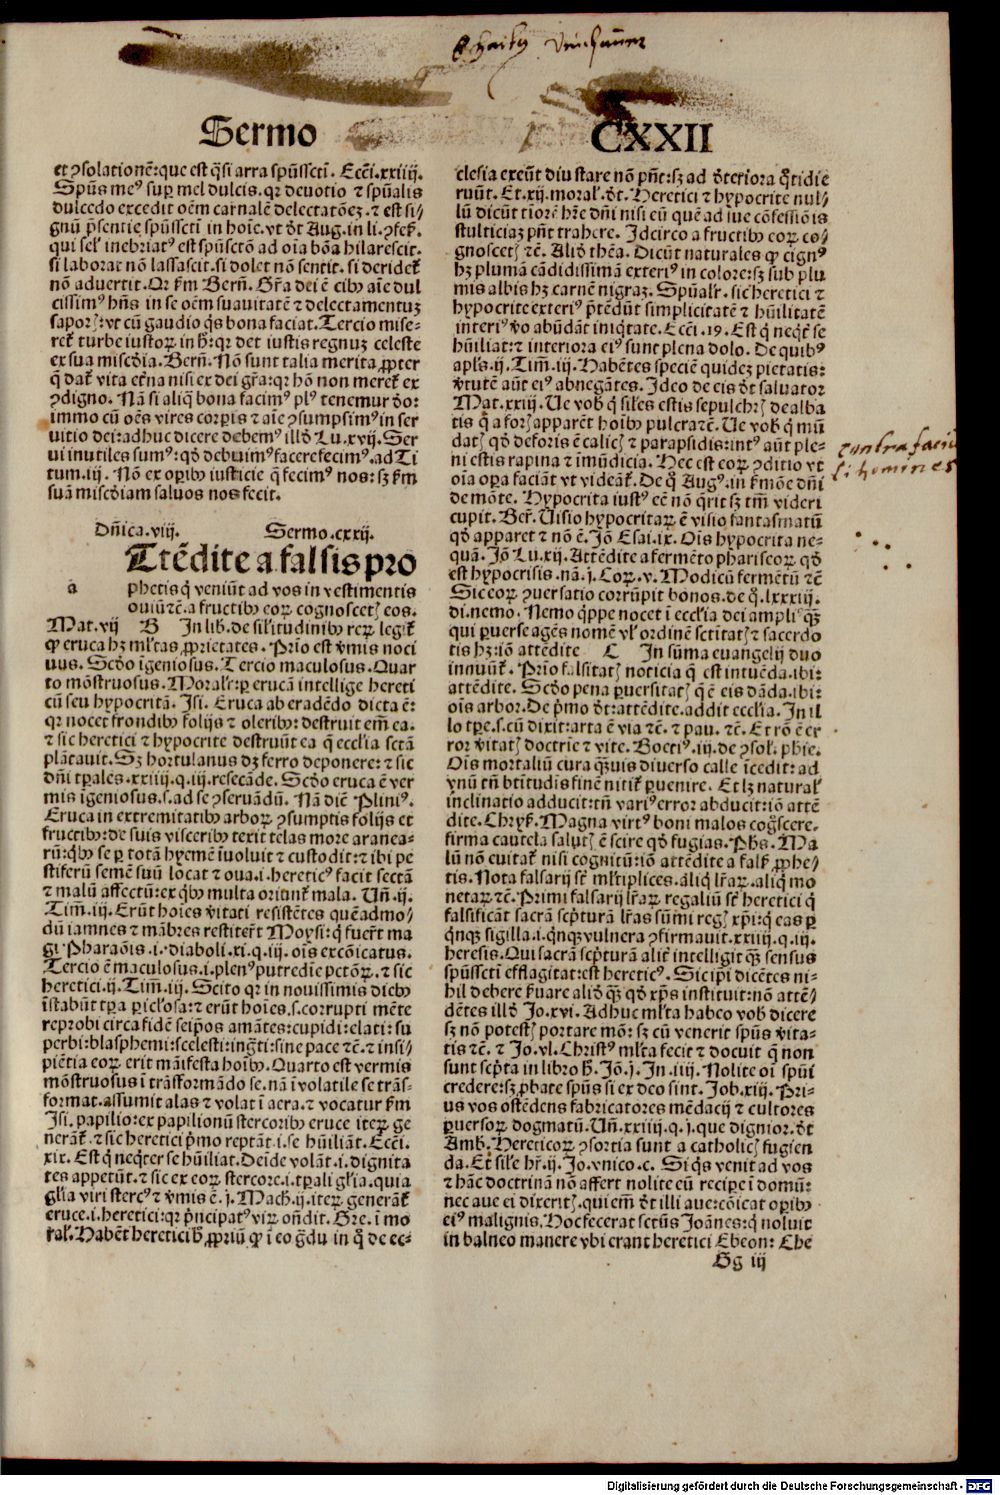 Sermo CXXII
et ꝯsolationē: que est q̄si arra spūssctī. Ecci. xxiiij.
Spūs me⁹ sup mel dulcis. qr deuotio ⁊ spūalis
dulcedo excedit oēm carnalē delectatōez. ⁊ est si/
gnū p̄sentie spūssctī in hoīe. vt dt Aug. in li. ꝯfes.
qui sel' inebriat⁹ est spūsctō ad oīa bōa hilarescit.
si laborat nō lassascit. si dolet nō sentit. si deridet᷑
nō aduertit. Qr fm Bern. Gr̄a dei ē cibꝰ aīe dul
cissim⁹ hn̄s in se oēm suauitatē ⁊ delectamentuz
sapor: vt cū gaudio q̄s bona faciat. Tercio mise-
ret᷑ turbe iustoꝝ in h: qr det iustis regnuz celeste
ex sua misc̄dia. Bern. Nō sunt talia merita ꝓpter
q̄ dat᷑ vita et̄na nisi ex dei gr̄a: qr hō non meret᷑ ex
ꝯdigno. Nā si aliq̄ bona facim⁹ pl⁹ tenemur do:
immo cū oēs vires corpis ⁊ aīe ꝯsumpsim⁹ in ser
uitio dei: adhuc dicere debem⁹ illd Lu. xvij. Ser
ui inutiles sum⁹: qd debuim⁹ facere fecim⁹. ad Ti
tum. iij. Nō ex opibꝰ iusticie q̄ fecim⁹ nos: sz fm
suā misc̄diam saluos nos fecit.
Dn̄ica. viij. Sermo. cxxij.
Ttēdite a falsis pro
a phetis q̄ veniūt ad vos in vestimentis
ouiū ⁊c̄. a fructibꝰ eoꝝ cognoscetꝭ eos.
Mat. vij B In lib. de sil'itudinibꝰ reꝝ legit᷑
ꝙ eruca hz ml'tas ꝓprietates. Prīo est v̄mis noci
uus. Scdo īgeniosus. Tercio maculosus. Quar
to mōstruosus. Moralr: p erucā intellige hereti
cū seu hypocritā. Isi. Eruca ab eradēdo dicta ē:
qr nocet frondibꝰ folijs ⁊ oleribꝰ: destruit em̄ ea.
⁊ sic heretici ⁊ hypocrite destruūt ea q̄ eccl'ia sctā
plātauit. Sz hortulanus dz ferro deponere: ⁊ sic
dn̄i tpales. xxiiij. q. iij. resecāde. Scdo eruca ē ver
mis īgeniosus. s. ad se ꝯseruādū. Nā diē Plini⁹.
Eruca in extremitatibꝰ arboꝝ ꝯsumptis folijs et
fructibꝰ: de suis visceribꝰ texit telas more aranea-
rū: qbꝰ se p totā hyemē īuoluit ⁊ custodit: ⁊ ibi pe
stiferū semē suū locat ⁊ oua. i. heretic⁹ facit sectā
⁊ malū affectū: ex qbꝰ multa oriunt᷑ mala. Un̄. ij.
Tim̄. iij. Erūt hoīes v̄itati resistētes quēadmo/
dū iamnes ⁊ mābres restiterūt Moysi: q̄ fuert̄ ma
gi Pharaōis. i. diaboli. xi. q. iij. oīs excōicatus.
Tercio ē maculosus. i. plen⁹ putredīe pctōꝝ. ⁊ sic
heretici. ij. Tim̄. iij. Scito qr in nouissimis diebꝰ
īstabūt tpa picl'osa: ⁊ erūt hoīes. s. corrupti mēte
reprobi circa fidē seip̄os amātes: cupidi: elati: su
perbi: blasphemi: scelesti: īgti: sine pace ⁊c̄. ⁊ insi-
piētia eoꝝ erit māifesta hoībꝰ. Quarto est vermis
mōstruosus ī trāsformādo se. nā ī volatile se trās-
format. assumit alas ⁊ volat ī aera. ⁊ vocatur fm
Isi. papilio: ex papilionū stercoribꝰ eruce iteꝝ ge
nerāt᷑. ⁊ sic heretici p̄mo reptāt. i. se hūiliāt. Ecci.
xix. Est q̄ neqter se hūiliat. Deīde volāt. i. dignita
tes appetūt. ⁊ sic ex eoꝝ stercore. i. tpali gl'ia. quia
gl'ia viri sterc⁹ ⁊ v̄mis ē. j. Mach. ij. iteꝝ generāt᷑
eruce. i. heretici: qr p̄ncipat⁹ viꝝ on̄dit. Gre. ī mo
ral'. Habēt heretici h ꝓpriū ꝙ ī eo gdu in q̄ de ec-
clesia exeūt diu stare nō pn̄t: sz ad dteriora q̄tidie
ruūt. Et. xij. moral'. dt. Heretici ⁊ hypocrite nul/
lū dicūt tiorē hr̄e dn̄i nisi eū quē ad sue cōfessiōis
stulticiaz pn̄t trahere. Idcirco a fructibꝰ eoꝝ co/
gnoscetꝭ ⁊c̄. Alid thēa. Dicūt naturales ꝙ cign⁹
hz plumā cādidissimā exteri⁹ in colore: sz sub plu
mis albis hz carnē nigraz. Spūalr. sic heretici ⁊
hypocrite exteri⁹ p̄tēdūt simplicitatē ⁊ hūilitatē
interi⁹ vo abūdāt iniqtate. Ecci. 19. Est q̄ neqt̄ se
hūiliat: ⁊ interiora ei⁹ sunt plena dolo. De quibꝰ
apl's. ij. Tim̄. iij. Habētes speciē quidez pietatis:
v̄tutē aūt ei⁹ abnegātes. Ideo de eis dt saluator
Mat. xxiij. Ue vob q̄ sil'es estis sepulchrꝭ dealba
tis q̄ a forꝭ apparēt hoībꝰ pulcra ⁊c̄. Ue vob q̄ mū
datꝭ qd deforis ē calicꝭ ⁊ parapsidis: int⁹ aūt ple-
ni estis rapina ⁊ īmūdicia. Hec est eoꝝ ꝯditio vt
oīa opa faciāt vt videāt᷑. De q̄ Aug⁹. in f̄mōe dn̄i
de mōte. Hypocrita iust⁹ eē nō q̄rit sz tm̄ videri
cupit. Ber. Uisio hypocritaꝝ ē visio fantasmatū
qd apparet ⁊ nō ē. Iō Esai. ix. Oīs hypocrita ne-
quā. Iō Lu. xij. Attēdite a fermēto phariseoꝝ qd
est hypocrisis. nā. j. Coꝝ. v. Modicū fermētū ⁊c̄
Sic eoꝝ ꝯuersatio corrūpit bonos. de q̄. lxxxiij.
di. nemo. Nemo q̄ppe nocet ī eccl'ia dei ampli⁹ q̄ꝫ
qui puerse agēs nomē vl' ordinē sctītatꝭ ⁊ sacerdo
tis hz: iō attēdite C In sūma euangelij duo
innuūt᷑. Prīo falsitatꝭ noticia q̄ est intuēda. ibi:
attēdite. Scdo pena puersitatꝭ q̄ ē eis dāda. ibi:
oīs arbor. De p̄mo dt: attēdite. addit eccl'ia. In il
lo tpe. s. cū dixit: arta ē via ⁊c̄. ⁊ pau. ⁊c̄. Et rō ē er
ror v̄itatꝭ doctrīe ⁊ vite. Boeti⁹. iij. de ꝯsol. phīe.
Oīs mortaliū cura q̄ꝫuis diuerso calle īcedit: ad
vnū tn̄ btītudīs finē nitit᷑ puenire. Et lz natural'
inclinatio adducit: tn̄ vari⁹ error abducit: iō attē
dite. Chrys. Magna virt⁹ boni malos cogscere.
firma cautela salutꝭ ē scire qd fugias. Phs. Ma
lū nō euitat᷑ nisi cognitū: iō attēdite a fals ꝓphe/
tis. Nota falsarij st̄ ml'tiplices. aliq̄ lr̄aꝝ. aliq̄ mo
netaꝝ ⁊c̄. Primi falsarij lr̄aꝝ regaliū st̄ heretici q̄
falsificāt sacrā sc̄pturā lr̄as sūmi regꝭ xp̄i: q̄ eas p
q̄nqꝫ sigilla. i. q̄nqꝫ vulnera ꝯfirmauit. xxiiij. q. iij.
heresis. Qui sacrā sc̄pturā alit̄ intelligit q̄ꝫ sensus
spūsscti efflagitat: est heretic⁹. Sic ip̄i dicētes ni-
hil debere f̄uare alid q̄ꝫ qd xp̄s instituit: nō attē/
dētes illd Jo. xvi. Adhuc ml'ta habeo vob dicere
sz nō potestꝭ portare mō: sz cū venerit spūs v̄ita-
tis ⁊c̄. ⁊ Jo. vl. Christ⁹ ml'ta fecit ⁊ docuit q̄ non
sunt sc̄pta in libro h. Iō. j. Jo. iiij. Nolite oī spūi
credere: sz ꝓbate spūs si ex deo sint. Job. xiij. Pri-
us vos ostēdens fabricatores mēdacij ⁊ cultores
puersoꝝ dogmatū. Un̄. xxiiij. q. j. que dignior. dt
Amb. Hereticoꝝ ꝯsortia sunt a catholicꝭ fugien
da. Et sil'e hr̄. ij. Jo. vnico. c. Si q̄s venit ad vos
⁊ hāc doctrinā nō affert nolite eū recipe ī domū:
nec aue ei dixeritꝭ. qui em̄ dt illi aue: cōicat opibꝰ
ei⁹ malignis. Hoc fecerat sctūs Joānes: q̄ noluit
in balneo manere vbi erant heretici Ebeon: Che
Gg iij
contra faciu
li homines
Digitalisierung gefördert durch die Deutsche Forschungsgemeinschaft - DFG